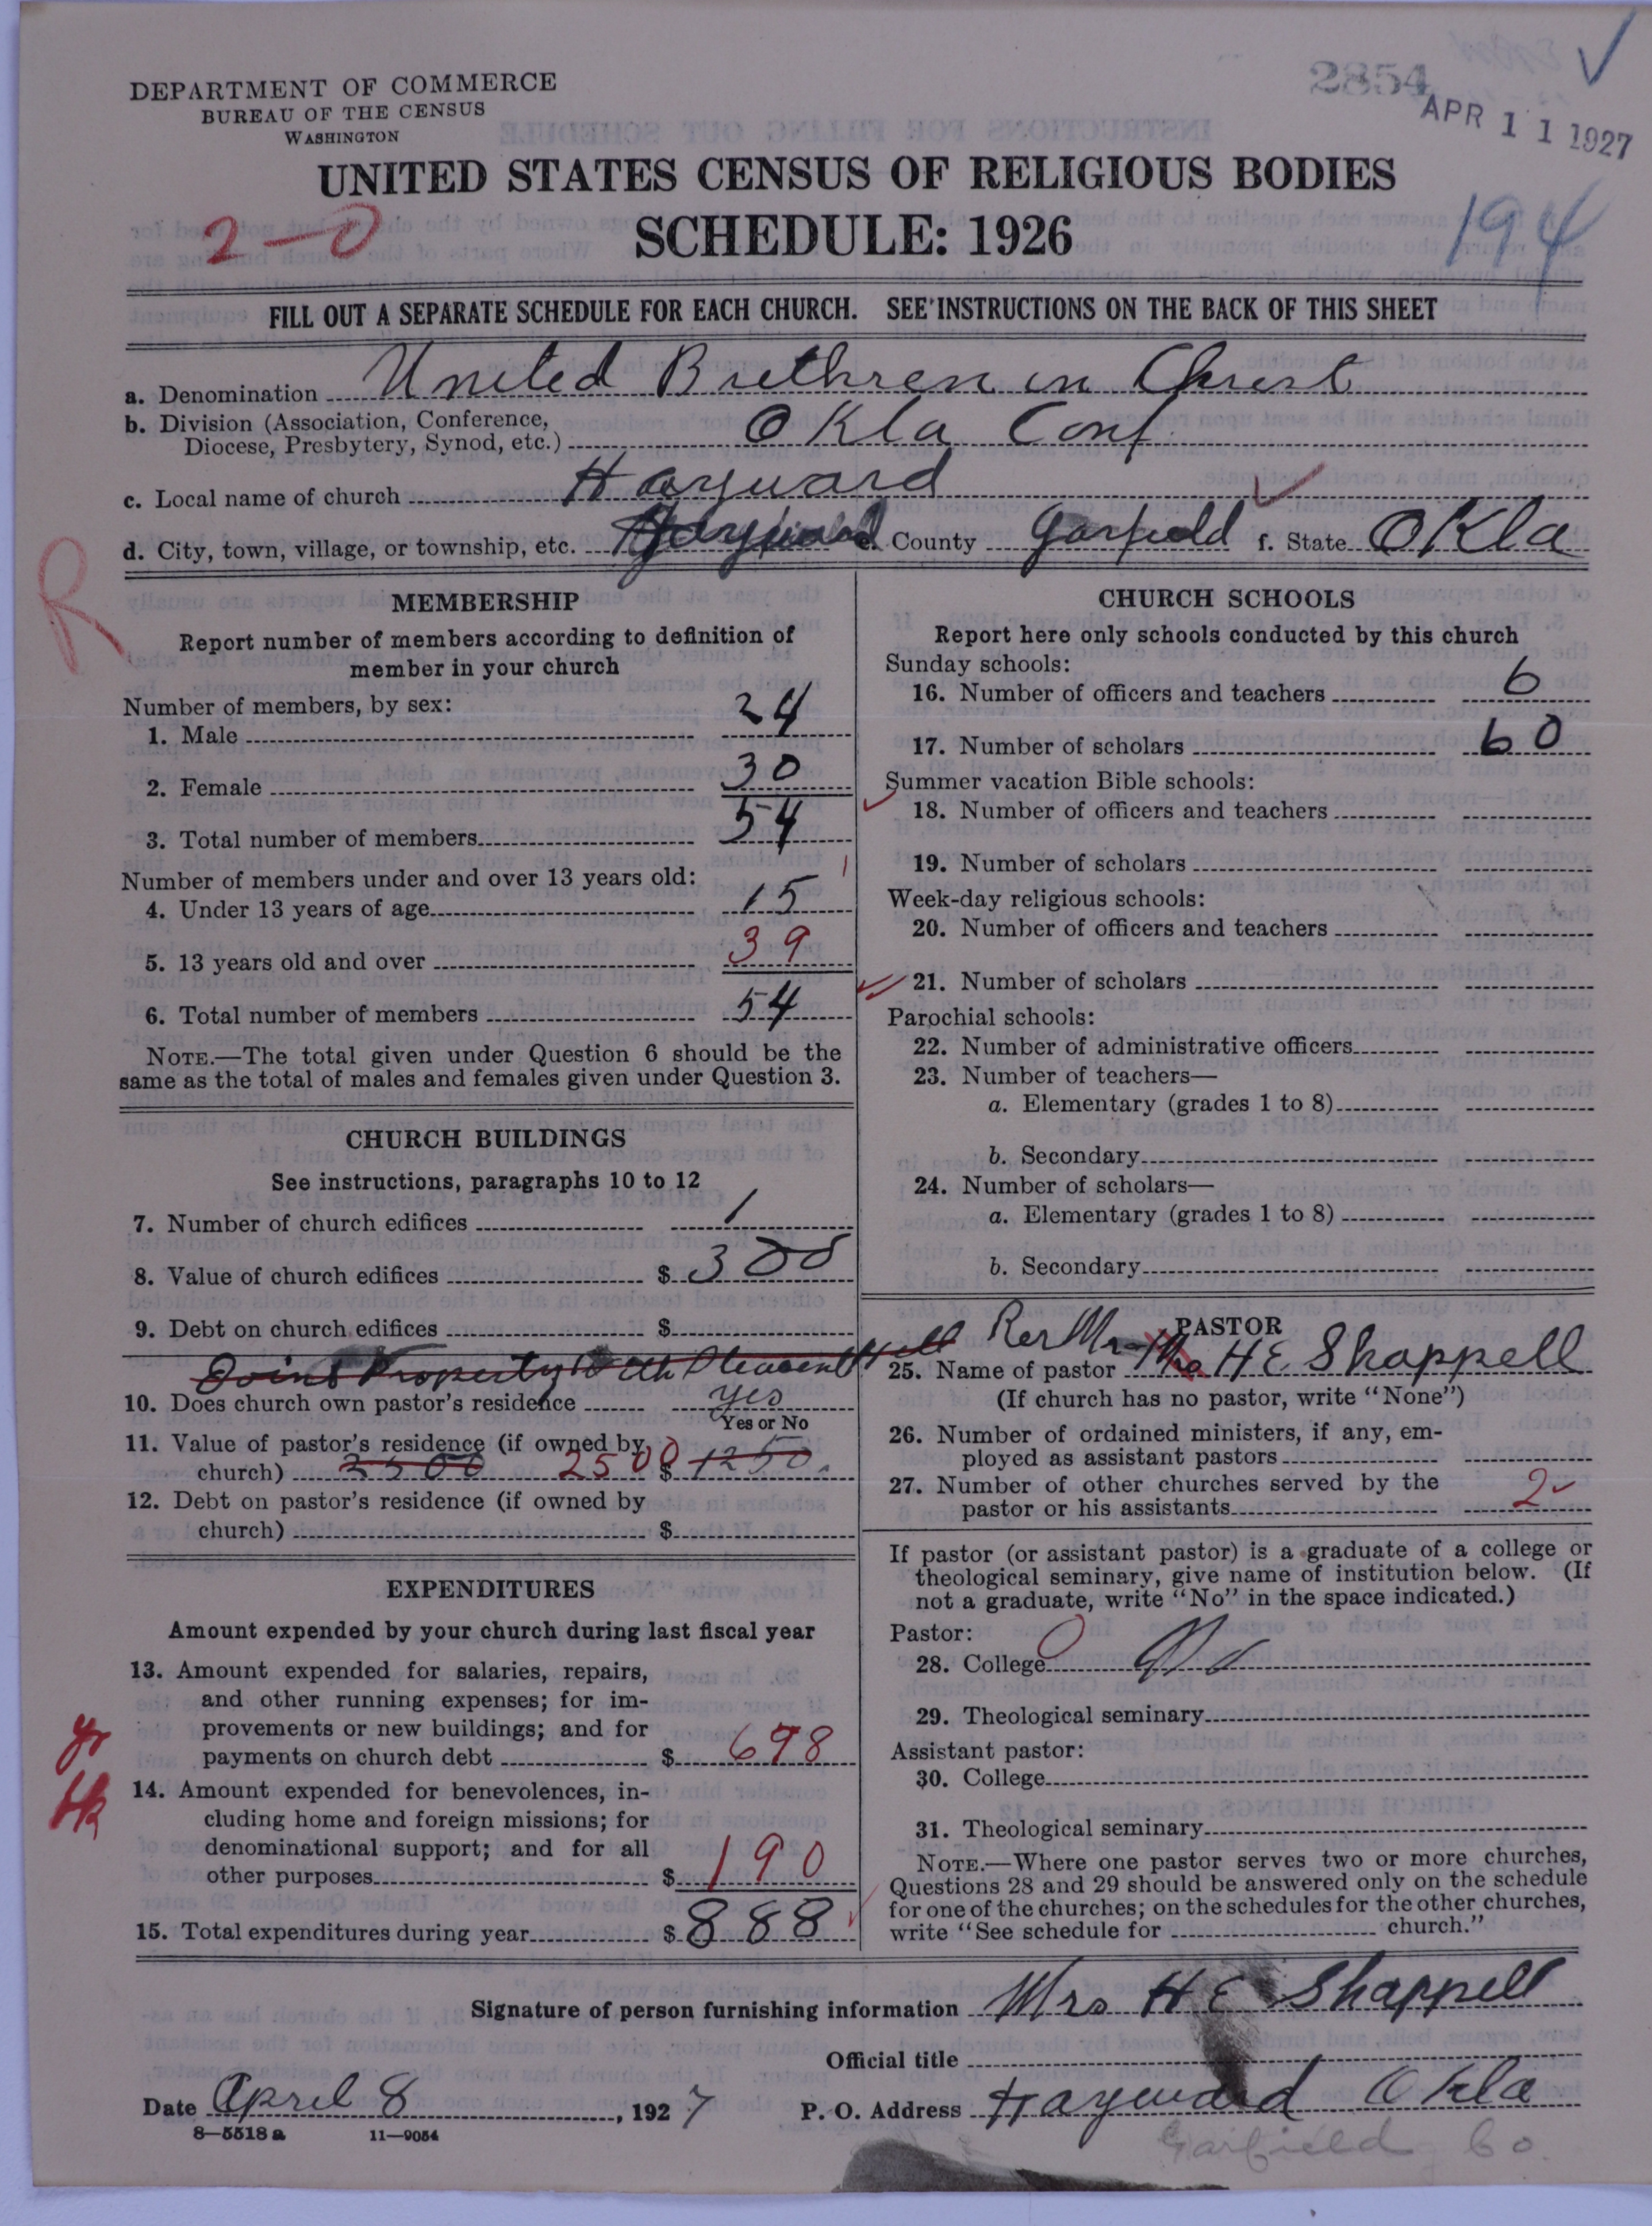 DEPARTMENT OF COMMERCE
BUREAU OF THE CENSUS
WASHINGTON
2854
APR 11 1927
UNITED STATES CENSUS OF RELIGIOUS BODIES
SCHEDULE: 1926
2-0
194
FILL OUT A SEPARATE SCHEDULE FOR EACH CHURCH. SEE INSTRUCTIONS ON THE BACK OF THIS SHEET
a. Denomination United Brethren in Christ
b. Division (Association, Conference,
Diocese, Presbytery, Synod, etc.) Okla Conf
c. Local name of church Hayward
d. City, town, village, or township, etc. Hayward e. County Garfield f. State Okla
R
MEMBERSHIP
Report number of members according to definition of
member in your church
Number of members, by sex:
1. Male 24
2. Female 30
3. Total number of members 54
Number of members under and over 13 years old:
4. Under 13 years of age 15
5. 13 years old and over 39
6. Total number of members 54
NOTE.—The total given under Question 6 should be the
same as the total of males and females given under Question 3.
CHURCH BUILDINGS
See instructions, paragraphs 10 to 12
7. Number of church edifices 1
8. Value of church edifices $ 300
9. Debt on church edifices $
Joint Property with Pleasant Hill
10. Does church own pastor's residence yes
Yes or No
11. Value of pastor's residence (if owned by
church) 2500 2500 $ 1250
12. Debt on pastor's residence (if owned by
church) $
EXPENDITURES
Amount expended by your church during last fiscal year
13. Amount expended for salaries, repairs,
and other running expenses; for im-
provements or new buildings; and for
payments on church debt $ 698
14. Amount expended for benevolences, in-
cluding home and foreign missions; for
denominational support; and for all
other purposes $ 190
15. Total expenditures during year $ 888
CHURCH SCHOOLS
Report here only schools conducted by this church
Sunday schools:
16. Number of officers and teachers 6
17. Number of scholars 60
Summer vacation Bible schools:
18. Number of officers and teachers
19. Number of scholars
Week-day religious schools:
20. Number of officers and teachers
21. Number of scholars
Parochial schools:
22. Number of administrative officers
23. Number of teachers—
a. Elementary (grades 1 to 8)
b. Secondary
24. Number of scholars—
a. Elementary (grades 1 to 8)
b. Secondary
PASTOR
25. Name of pastor Rev Mr Mrs H E Shappell
(If church has no pastor, write "None")
26. Number of ordained ministers, if any, em-
ployed as assistant pastors
27. Number of other churches served by the
pastor or his assistants 2
If pastor (or assistant pastor) is a graduate of a college or
theological seminary, give name of institution below. (If
not a graduate, write "No" in the space indicated.)
Pastor:
28. College 0 No
29. Theological seminary
Assistant pastor:
30. College
31. Theological seminary
NOTE.—Where one pastor serves two or more churches,
Questions 28 and 29 should be answered only on the schedule
for one of the churches; on the schedules for the other churches,
write "See schedule for church."
Signature of person furnishing information Mrs H E Shappell
Official title
Date April 8, 1927 P. O. Address Hayward Okla
8—5518 a 11—9054
Garfield Co.